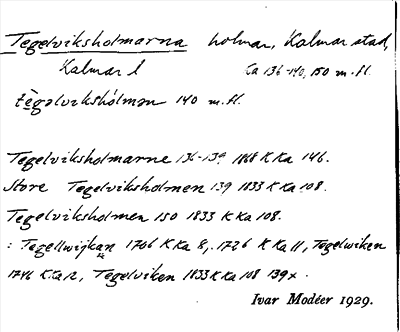 Tegelviksholmarna holmar, Kalmar stad,
Kalmar l Ca 136-140, 150 m.fl.
tègəlvikshólmən 140 m.fl.
Tegelviksholmarne 136-139 1868 K Ka 146.
Store Tegelviksholmen 139 1833 K Ka 108.
Tegelviksholmen 150 1833 K Ka 108.
: Tegellwijkan 1706 K Ka 8, 1726 K Ka 11, Tegelwiken
1746 K Ka 12, Tegelviken 1833 K Ka 108 139x.
Ivar Modéer 1929.